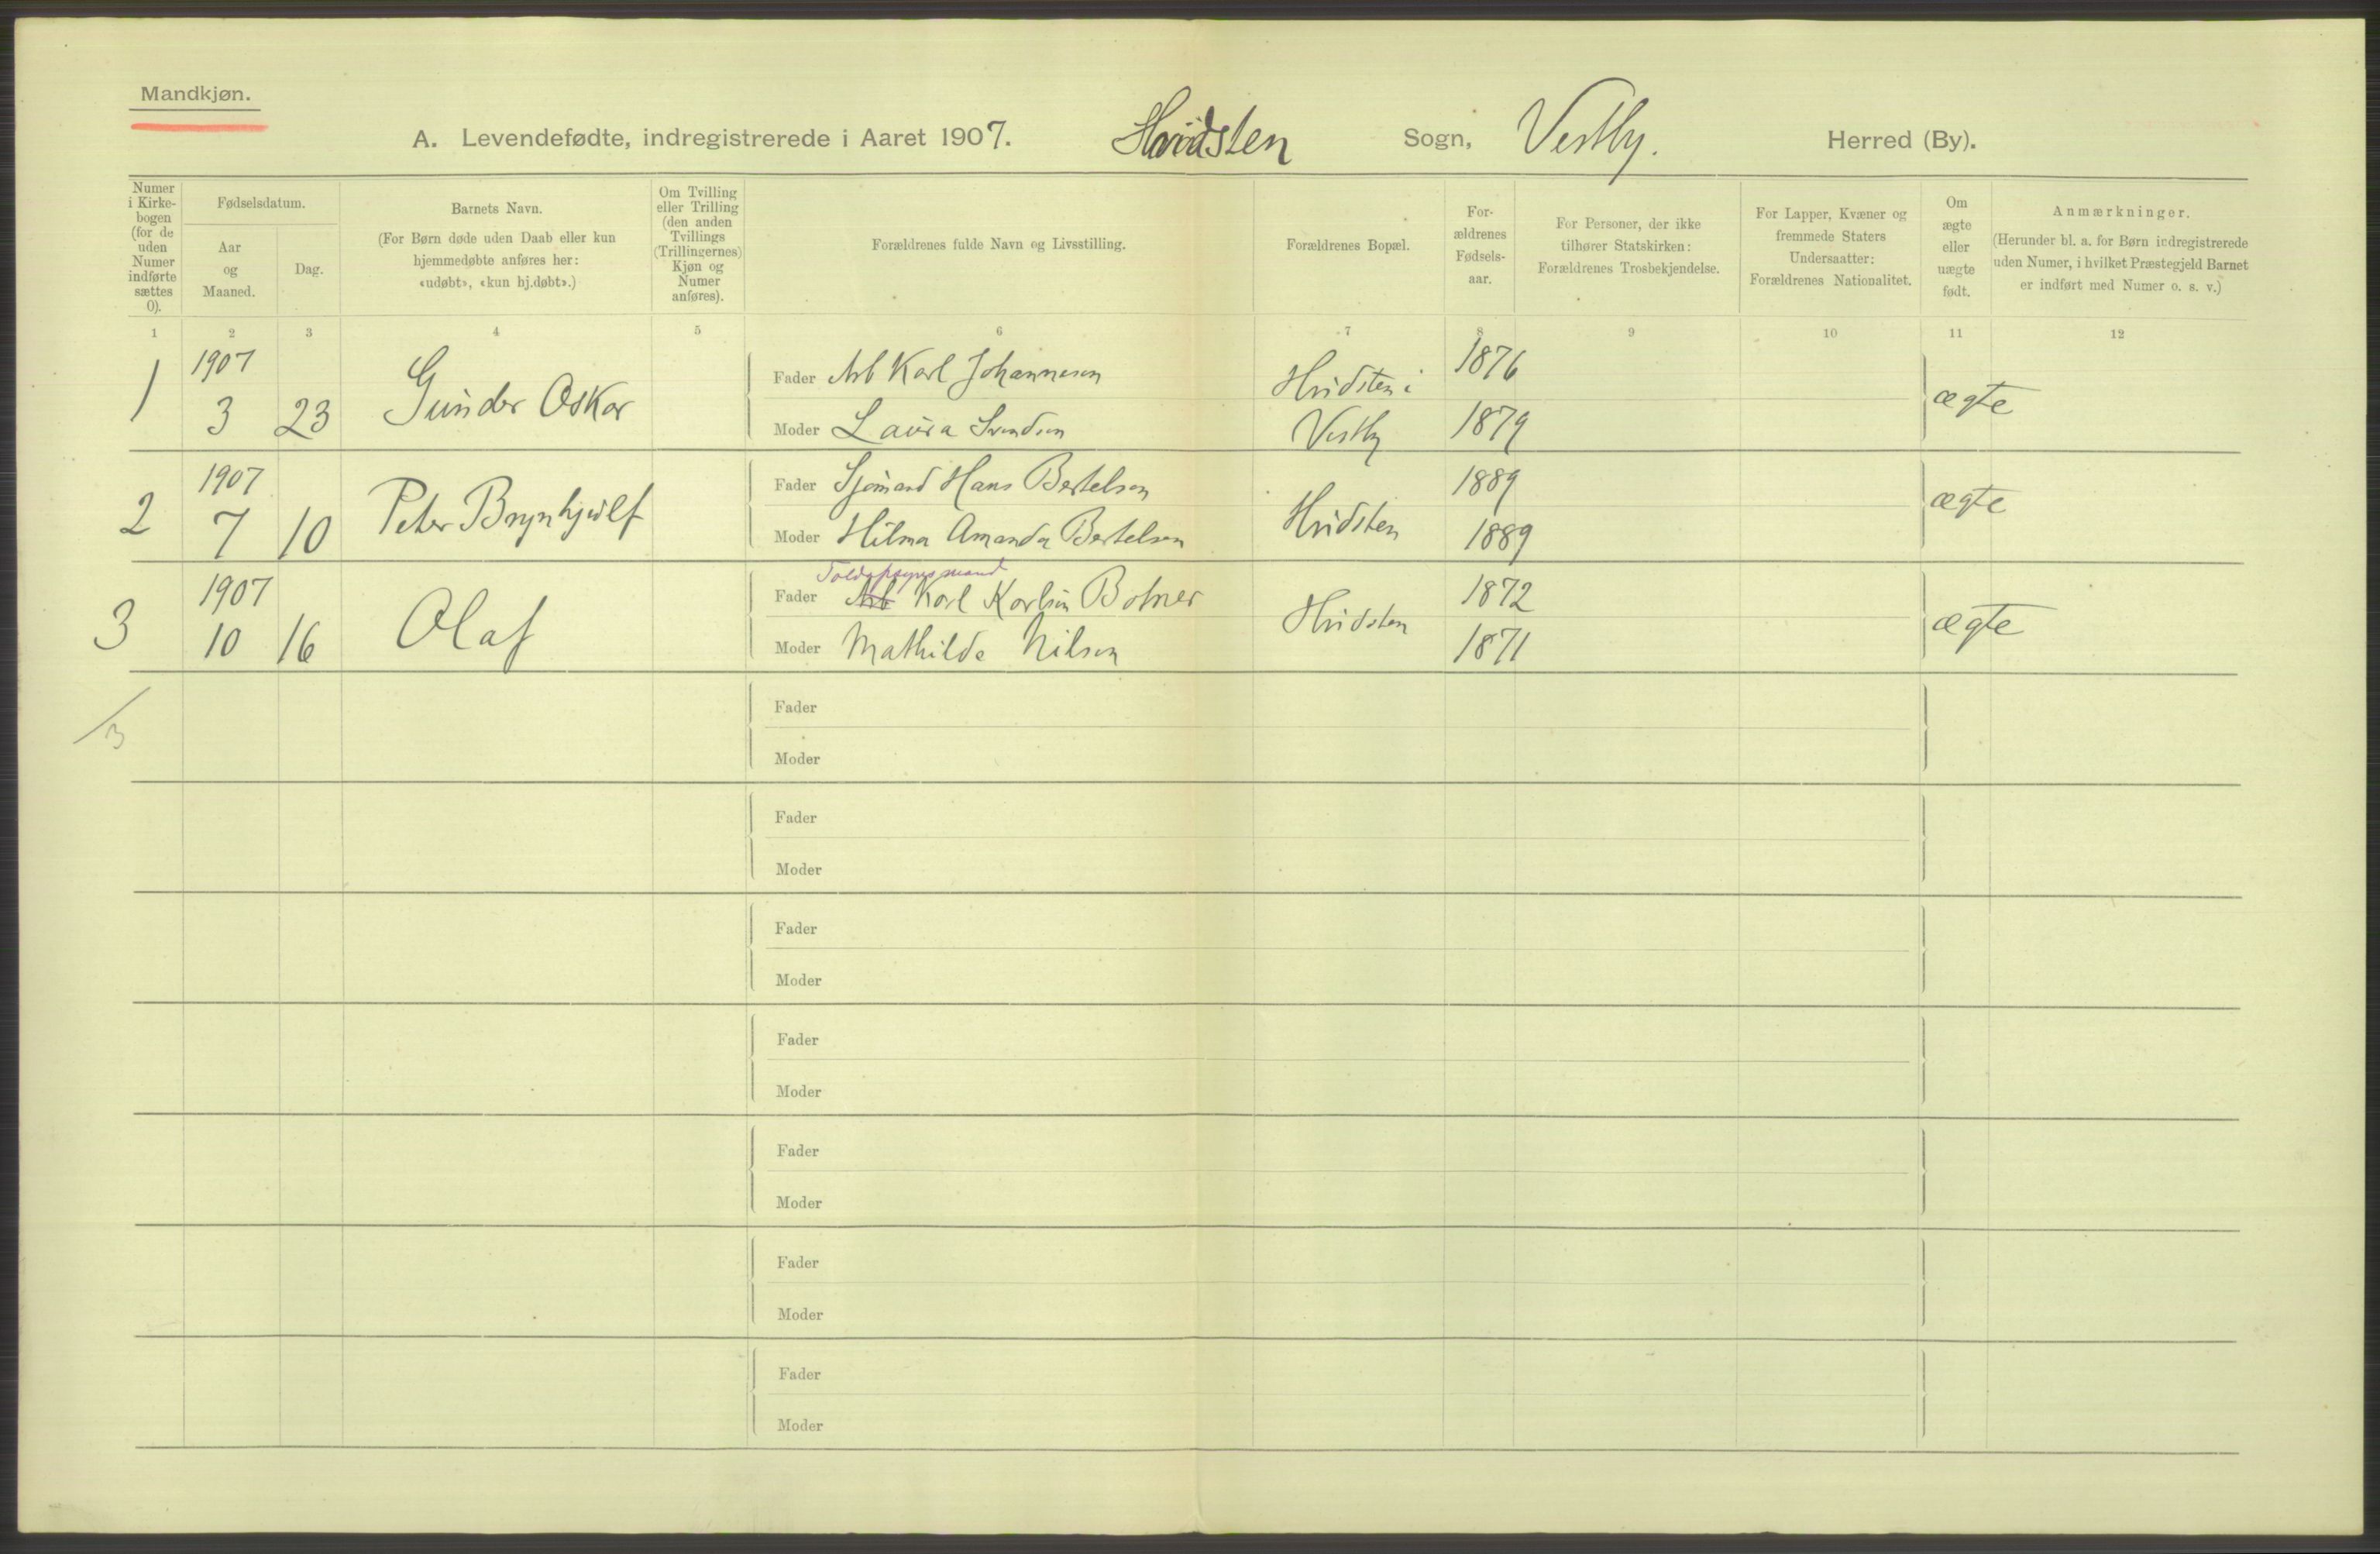 Mandkjøn.
A. Levendefødte, indregistrerede i Aaret 1907. Hvidsten Sogn, Vestby. Herred (By).
Numer i Kirkebogen (for de uden Numer indførte sættes 0).
Fødselsdatum.
Aar og Maaned.
Dag.
Barnets Navn.
(For Børn døde uden Daab eller kun hjemmedøbte anføres her: «udøbt», «kun hj.døbt».)
Om Tvilling eller Trilling (den anden Tvillings (Trillingernes) Kjøn og Numer anføres).
Forældrenes fulde Navn og Livsstilling.
Forældrenes Bopæl.
For-ældrenes Fødsels-aar.
For Personer, der ikke tilhører Statskirken: Forældrenes Trosbekjendelse.
For Lapper, Kvæner og fremmede Staters Undersaatter: Forældrenes Nationalitet.
Om ægte eller uægte født.
Anmærkninger.
(Herunder bl. a. for Børn indregistrerede uden Numer, i hvilket Præstegjeld Barnet er indført med Numer o. s. v.)
1 2 3 4 5 6 7 8 9 10 11 12
1 1907 3 23 Gunder Oskar
Fader Arb Karl Johannesen Hvidsten i 1876
Moder Laura Svendsen Vestby 1879 ægte
2 1907 7 10 Peter Brynhjulf
Fader Sjømand Hans Bertelsen Hvidsten 1889
Moder Hilma Amanda Bertelsen 1889 ægte
3 1907 10 16 Olaf
Toldopsynsmand
Fader Arb Karl Karlsen Botner Hvidsten 1872
Moder Mathilde Nilsen 1871 ægte
/3
Fader
Moder
Fader
Moder
Fader
Moder
Fader
Moder
Fader
Moder
Fader
Moder
Fader
Moder